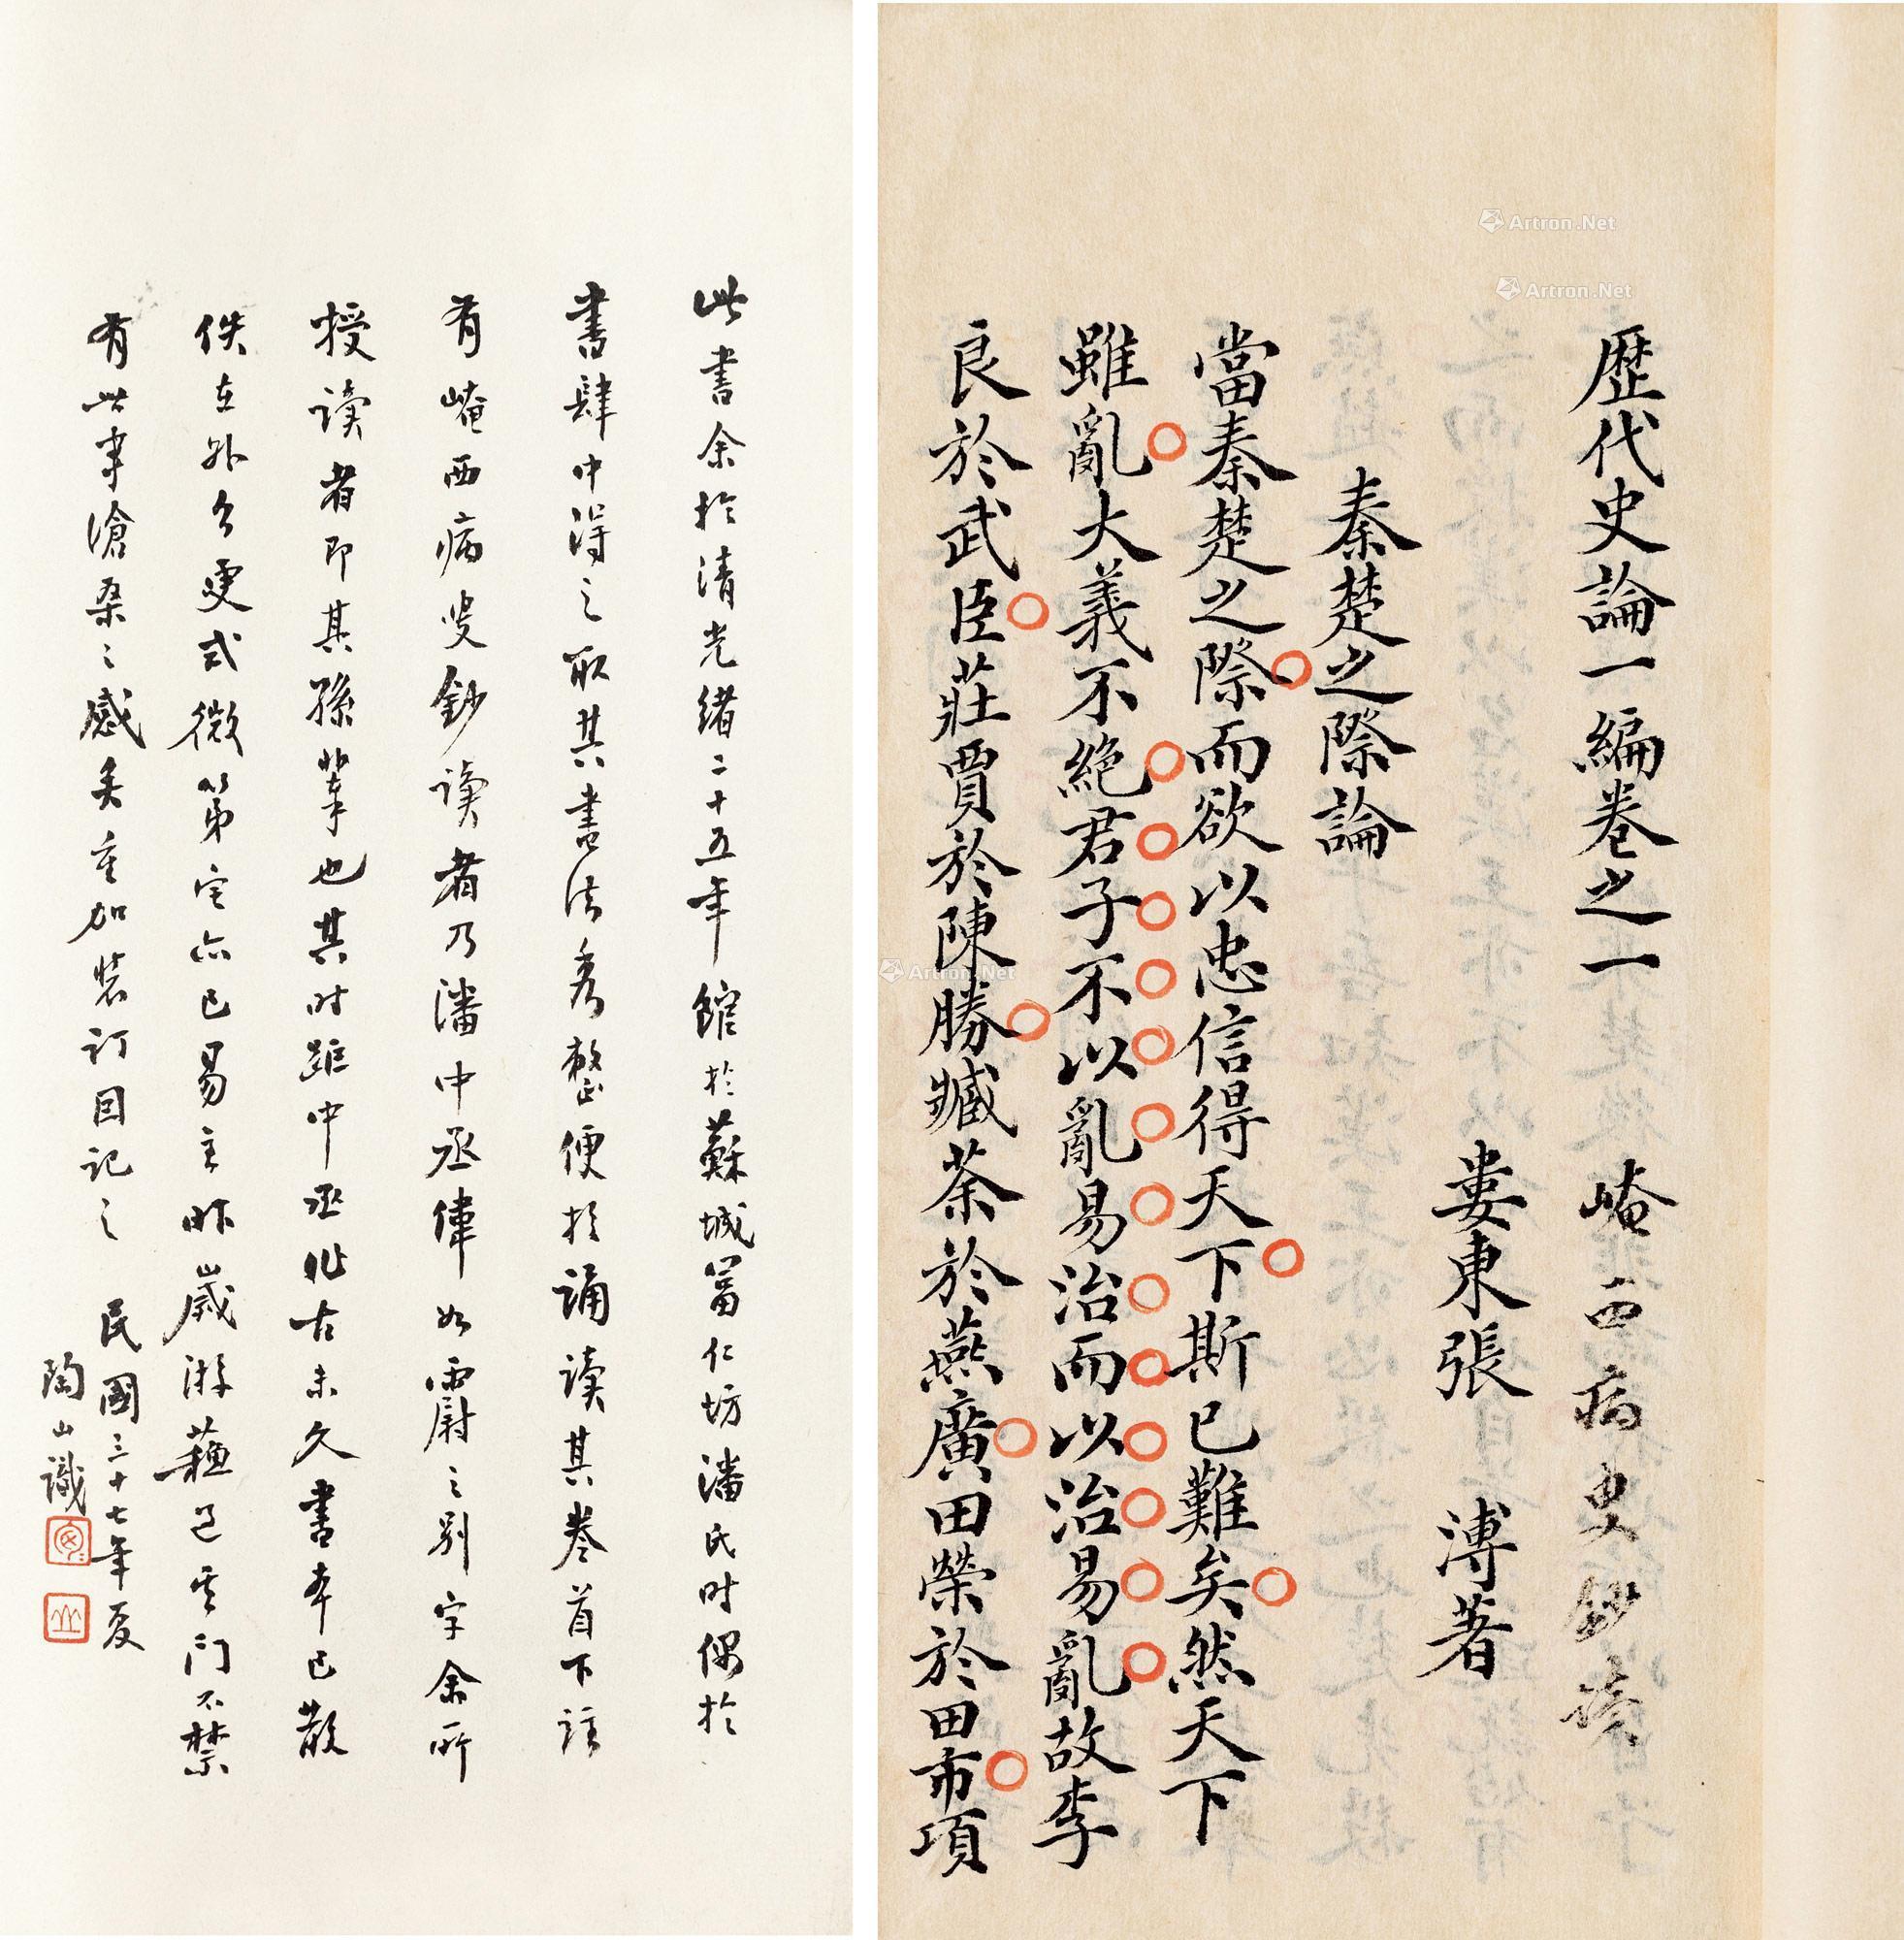 歷代史論一編卷之一 崦西病叟鈔讀
婁東張 溥著
秦楚之際論
當秦楚之際而欲以忠信得天下斯已難矣然天下
雖亂大義不絕君子不以亂易治而以治易亂故李
良於武臣莊賈於陳勝臧荼於燕廣田榮於田市項
此書余於清光緒二十五年館於蘇城富仁坊潘氏时偶於
書肆中得之取其書法秀整便於誦读其卷首下註
有崦西病叟鈔读者乃潘中丞偉如霨之别字余所
授读者即其孫輩也其时距中丞作古未久書本已散
佚在外今更式微第宅亦已易主昨歲游蘇過其门不禁
有此事滄桑之感矣重加裝订因记之 民國三十七年夏
陶山識
Artron.Net
Artron.Net
Artron.Net